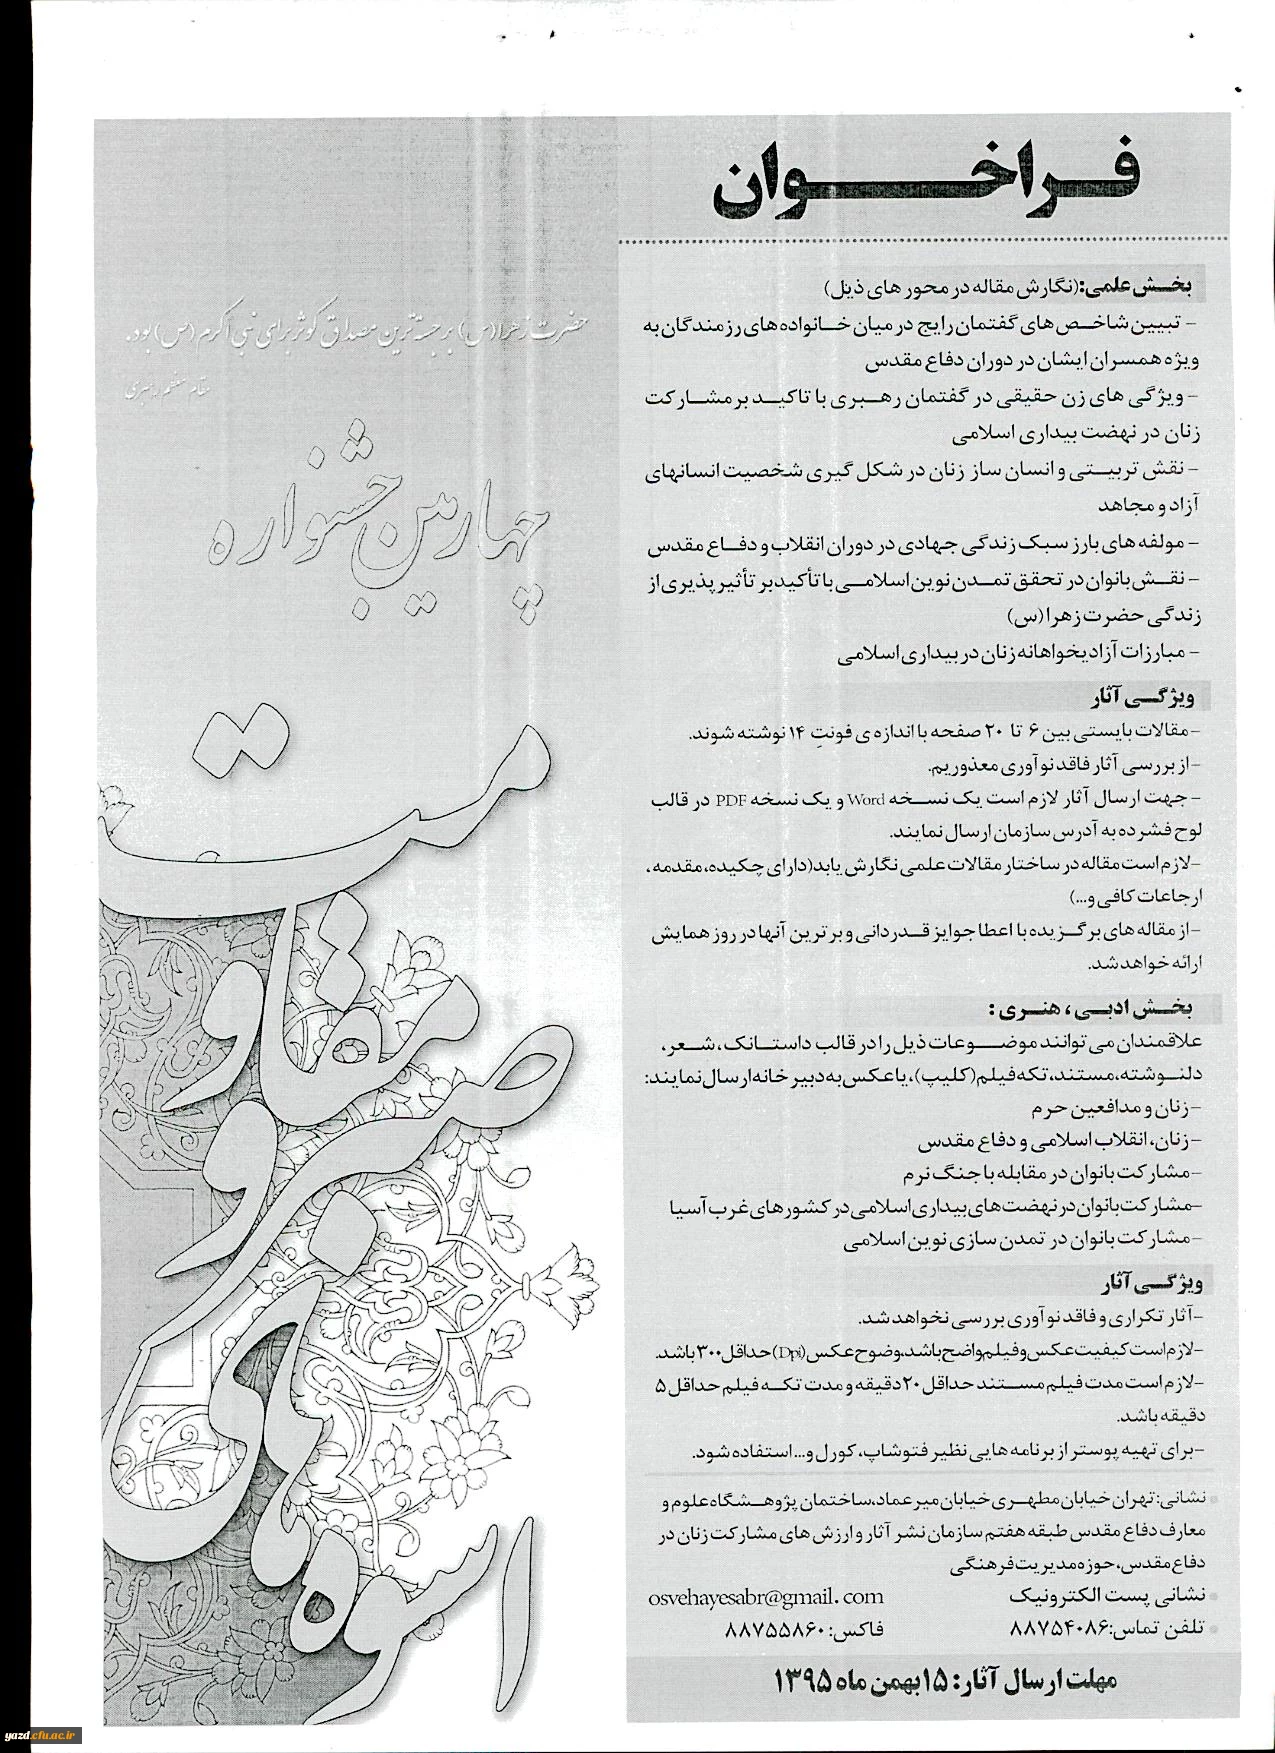 فراخوان
بخش علمی:(نگارش مقاله در محور های ذیل)
- تبیین شاخص های گفتمان رایج در میان خانواده های رزمندگان به
ویژه همسران ایشان در دوران دفاع مقدس
- ویژگی های زن حقیقی در گفتمان رهبری با تاکید بر مشارکت
زنان در نهضت بیداری اسلامی
- نقش تربیتی و انسان ساز زنان در شکل گیری شخصیت انسانهای
آزاد و مجاهد
- مولفه های بارز سبک زندگی جهادی در دوران انقلاب و دفاع مقدس
- نقش بانوان در تحقق تمدن نوین اسلامی با تأکید بر تأثیر پذیری از
زندگی حضرت زهرا (س)
- مبارزات آزادیخواهانه زنان در بیداری اسلامی
ویژگی آثار
-مقالات بایستی بین ۶ تا ۲۰ صفحه با اندازه ی فونتِ ۱۴ نوشته شوند.
-از بررسی آثار فاقد نوآوری معذوریم.
-جهت ارسال آثار لازم است یک نسخه Word و یک نسخه PDF در قالب
لوح فشرده به آدرس سازمان ارسال نمایند.
-لازم است مقاله در ساختار مقالات علمی نگارش یابد(دارای چکیده، مقدمه،
ارجاعات کافی و...)
-از مقاله های برگزیده با اعطا جوایز قدردانی و برترین آنها در روز همایش
ارائه خواهد شد.
بخش ادبی، هنری :
علاقمندان می توانند موضوعات ذیل را در قالب داستانک، شعر،
دلنوشته، مستند، تکه فیلم(کلیپ)، یا عکس به دبیر خانه ارسال نمایند:
-زنان و مدافعین حرم
-زنان، انقلاب اسلامی و دفاع مقدس
-مشارکت بانوان در مقابله با جنگ نرم
-مشارکت بانوان در نهضت های بیداری اسلامی در کشور های غرب آسیا
-مشارکت بانوان در تمدن سازی نوین اسلامی
ویژگی آثار
-آثار تکراری و فاقد نوآوری بررسی نخواهد شد.
-لازم است کیفیت عکس و فیلم واضح باشد، وضوح عکس (Dpi) حداقل ۳۰۰ باشد.
-لازم است مدت فیلم مستند حداقل ۲۰ دقیقه و مدت تکه فیلم حداقل ۵
دقیقه باشد.
-برای تهیه پوستر از برنامه هایی نظیر فتوشاپ، کورل و... استفاده شود.
نشانی: تهران خیابان مطهری خیابان میر عماد، ساختمان پژوهشگاه علوم و
معارف دفاع مقدس طبقه هفتم سازمان نشر آثار و ارزش های مشارکت زنان در
دفاع مقدس، حوزه مدیریت فرهنگی
نشانی پست الکترونیک osvehayesabr@gmail.com
تلفن تماس:۸۸۷۵۴۰۸۶ فاکس: ۸۸۷۵۵۸۶۰
مهلت ارسال آثار: ۱۵ بهمن ماه ۱۳۹۵
حضرت زهرا(س) برجسته ترین مصداق کوثر برای نبی اکرم (س) بود.
مقام معظم رهبری
چهارمین جشنواره
اسوه های
صبر و
مقاومت
yazd.cfu.ac.ir